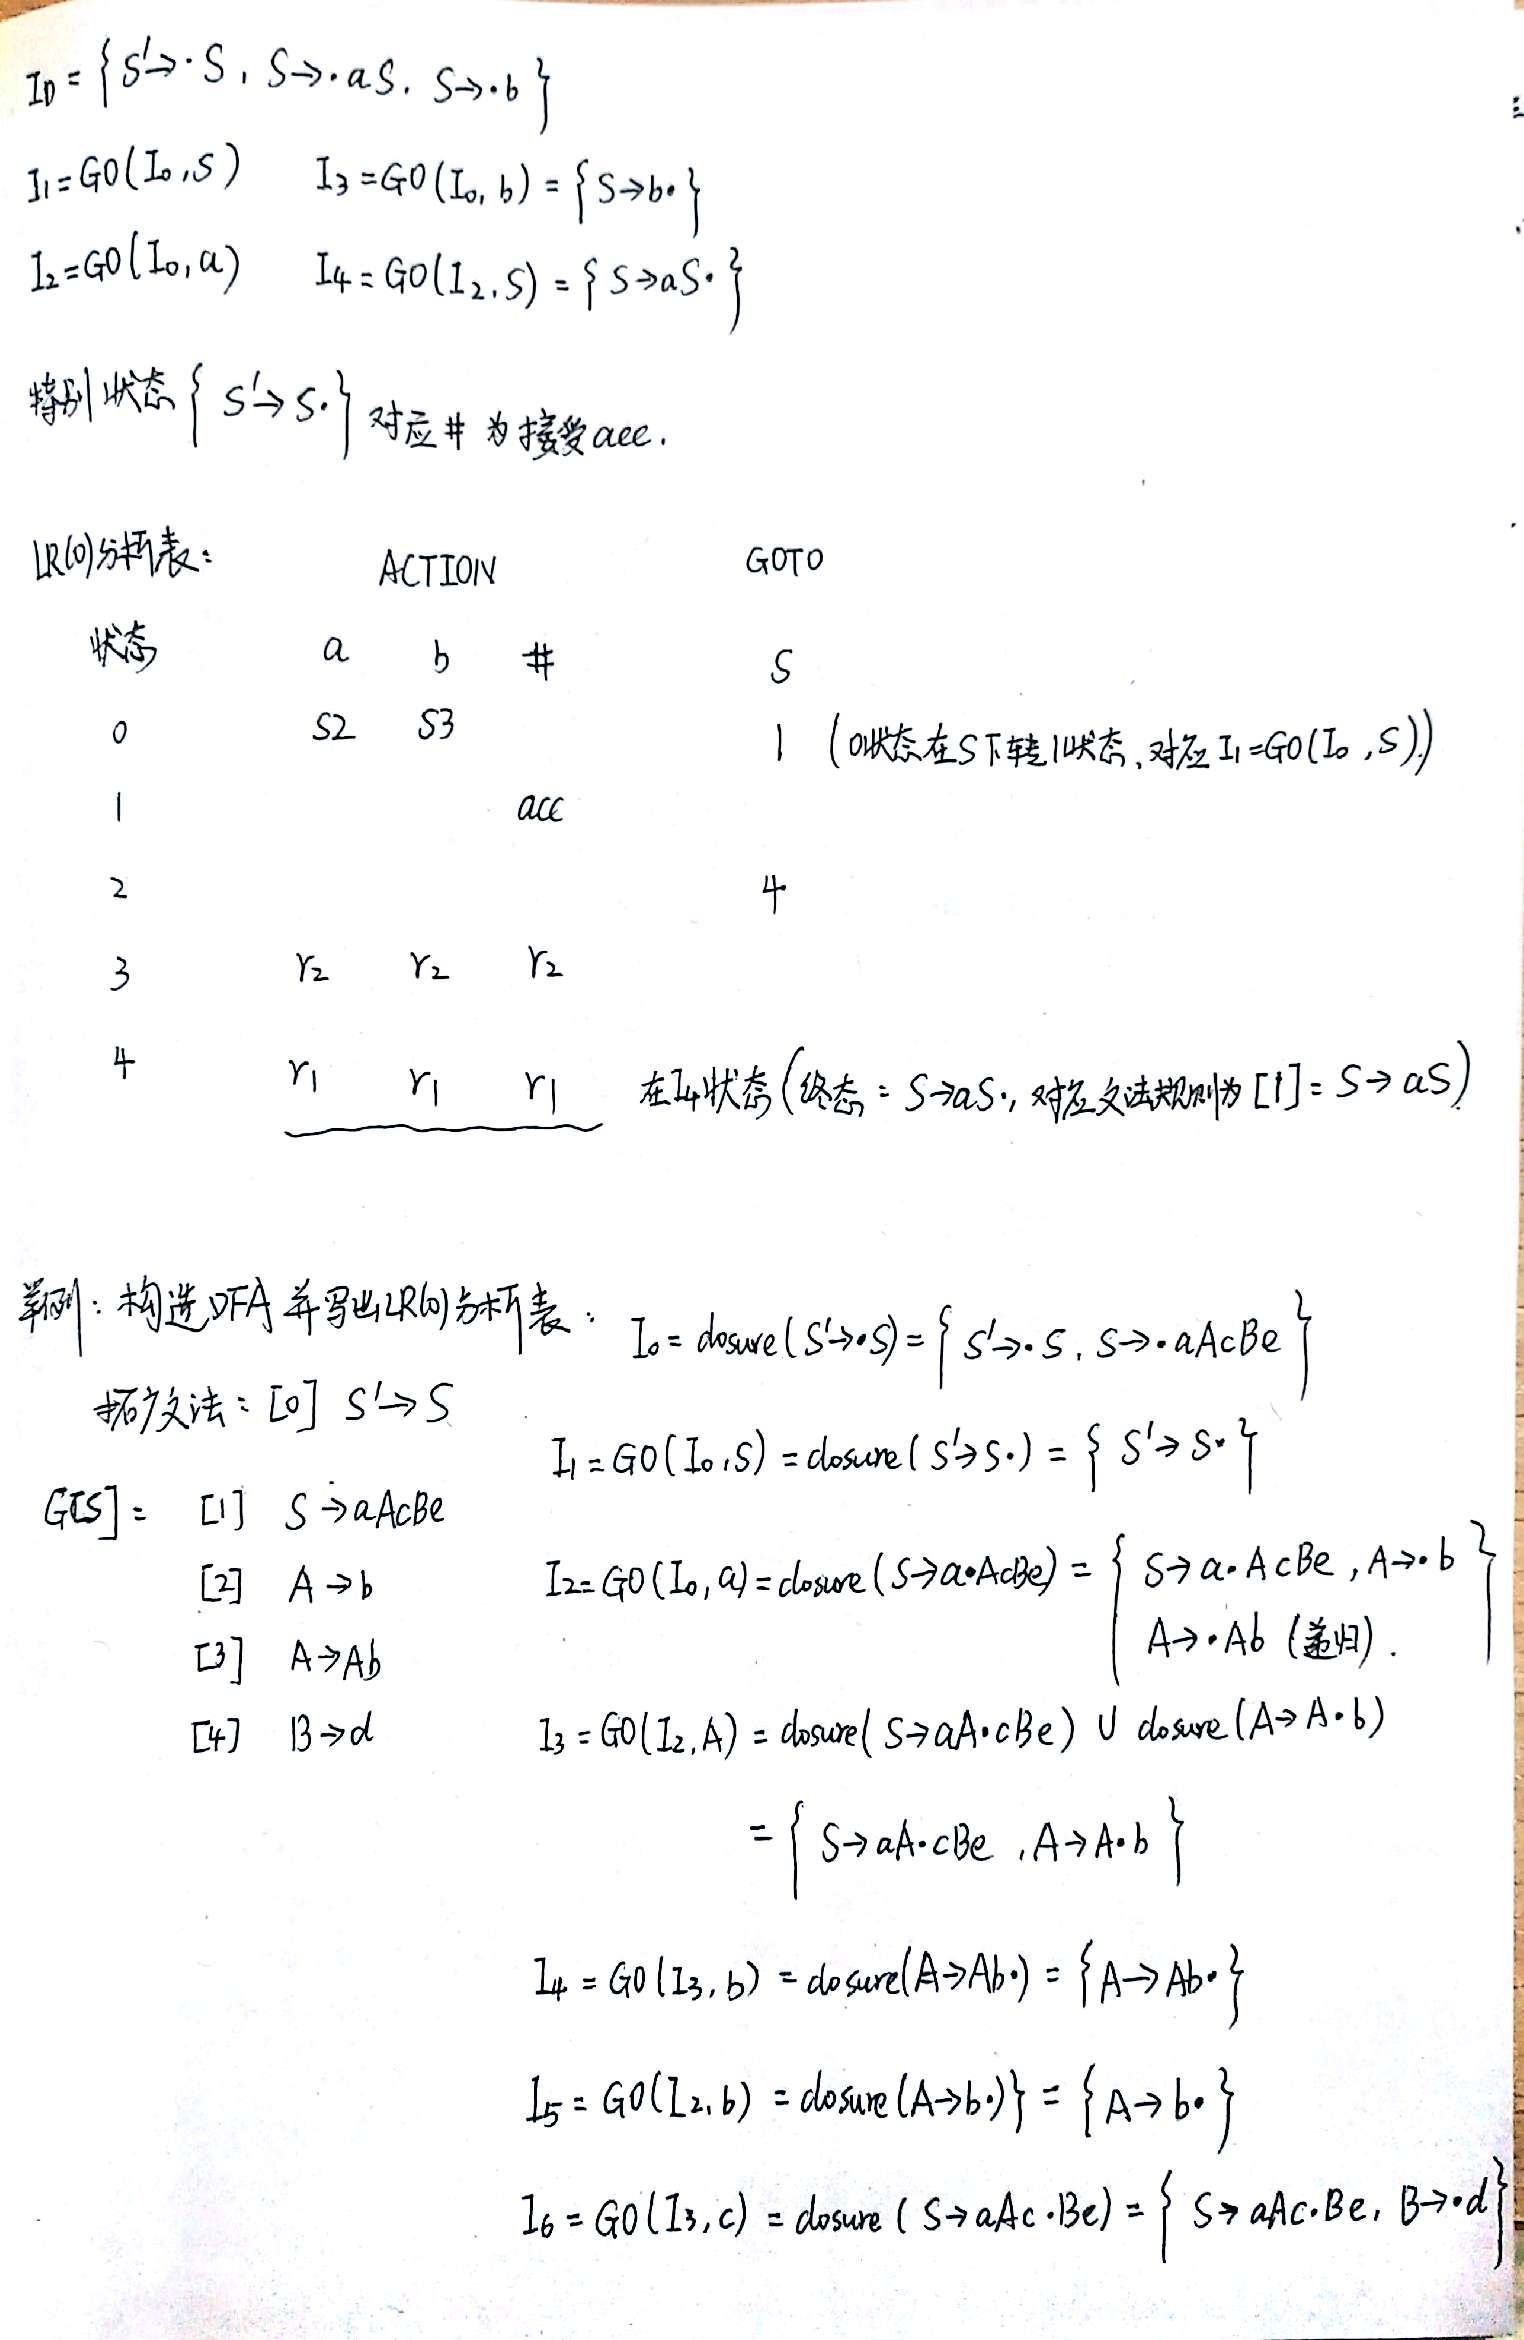 I0 = { S'→·S, S→·aS, S→·b }
I1=GO(I0,S) I3=GO(I0,b)={S→b·}
I2=GO(I0,a) I4=GO(I2,S)={S→aS·}
特别状态{S'→S·}对应#为接受acc.
LR(0)分析表: ACTION GOTO
状态 a b # S
0 S2 S3 1 (0状态在S下转1状态,对应I1=GO(I0,S))
1 acc
2 4
3 r2 r2 r2
4 r1 r1 r1 在I4状态(终态: S→aS·, 对应文法规则为[1]: S→aS)
举例: 构造DFA并写出LR(0)分析表:
拓广文法: [0] S'→S
G[S]: [1] S→aAcBe
[2] A→b
[3] A→Ab
[4] B→d
I0=closure(S'→·S)={S'→·S, S→·aAcBe}
I1=GO(I0,S)=closure(S'→S·)={S'→S·}
I2=GO(I0,a)=closure(S→a·AcBe)={S→a·AcBe, A→·b
A→·Ab (递归).}
I3=GO(I2,A)=closure(S→aA·cBe) ∪ closure(A→A·b)
={S→aA·cBe, A→A·b}
I4=GO(I3,b)=closure(A→Ab·)={A→Ab·}
I5=GO(I2,b)=closure(A→b·)}={A→b·}
I6=GO(I3,c)=closure(S→aAc·Be)={S→aAc·Be, B→·d}